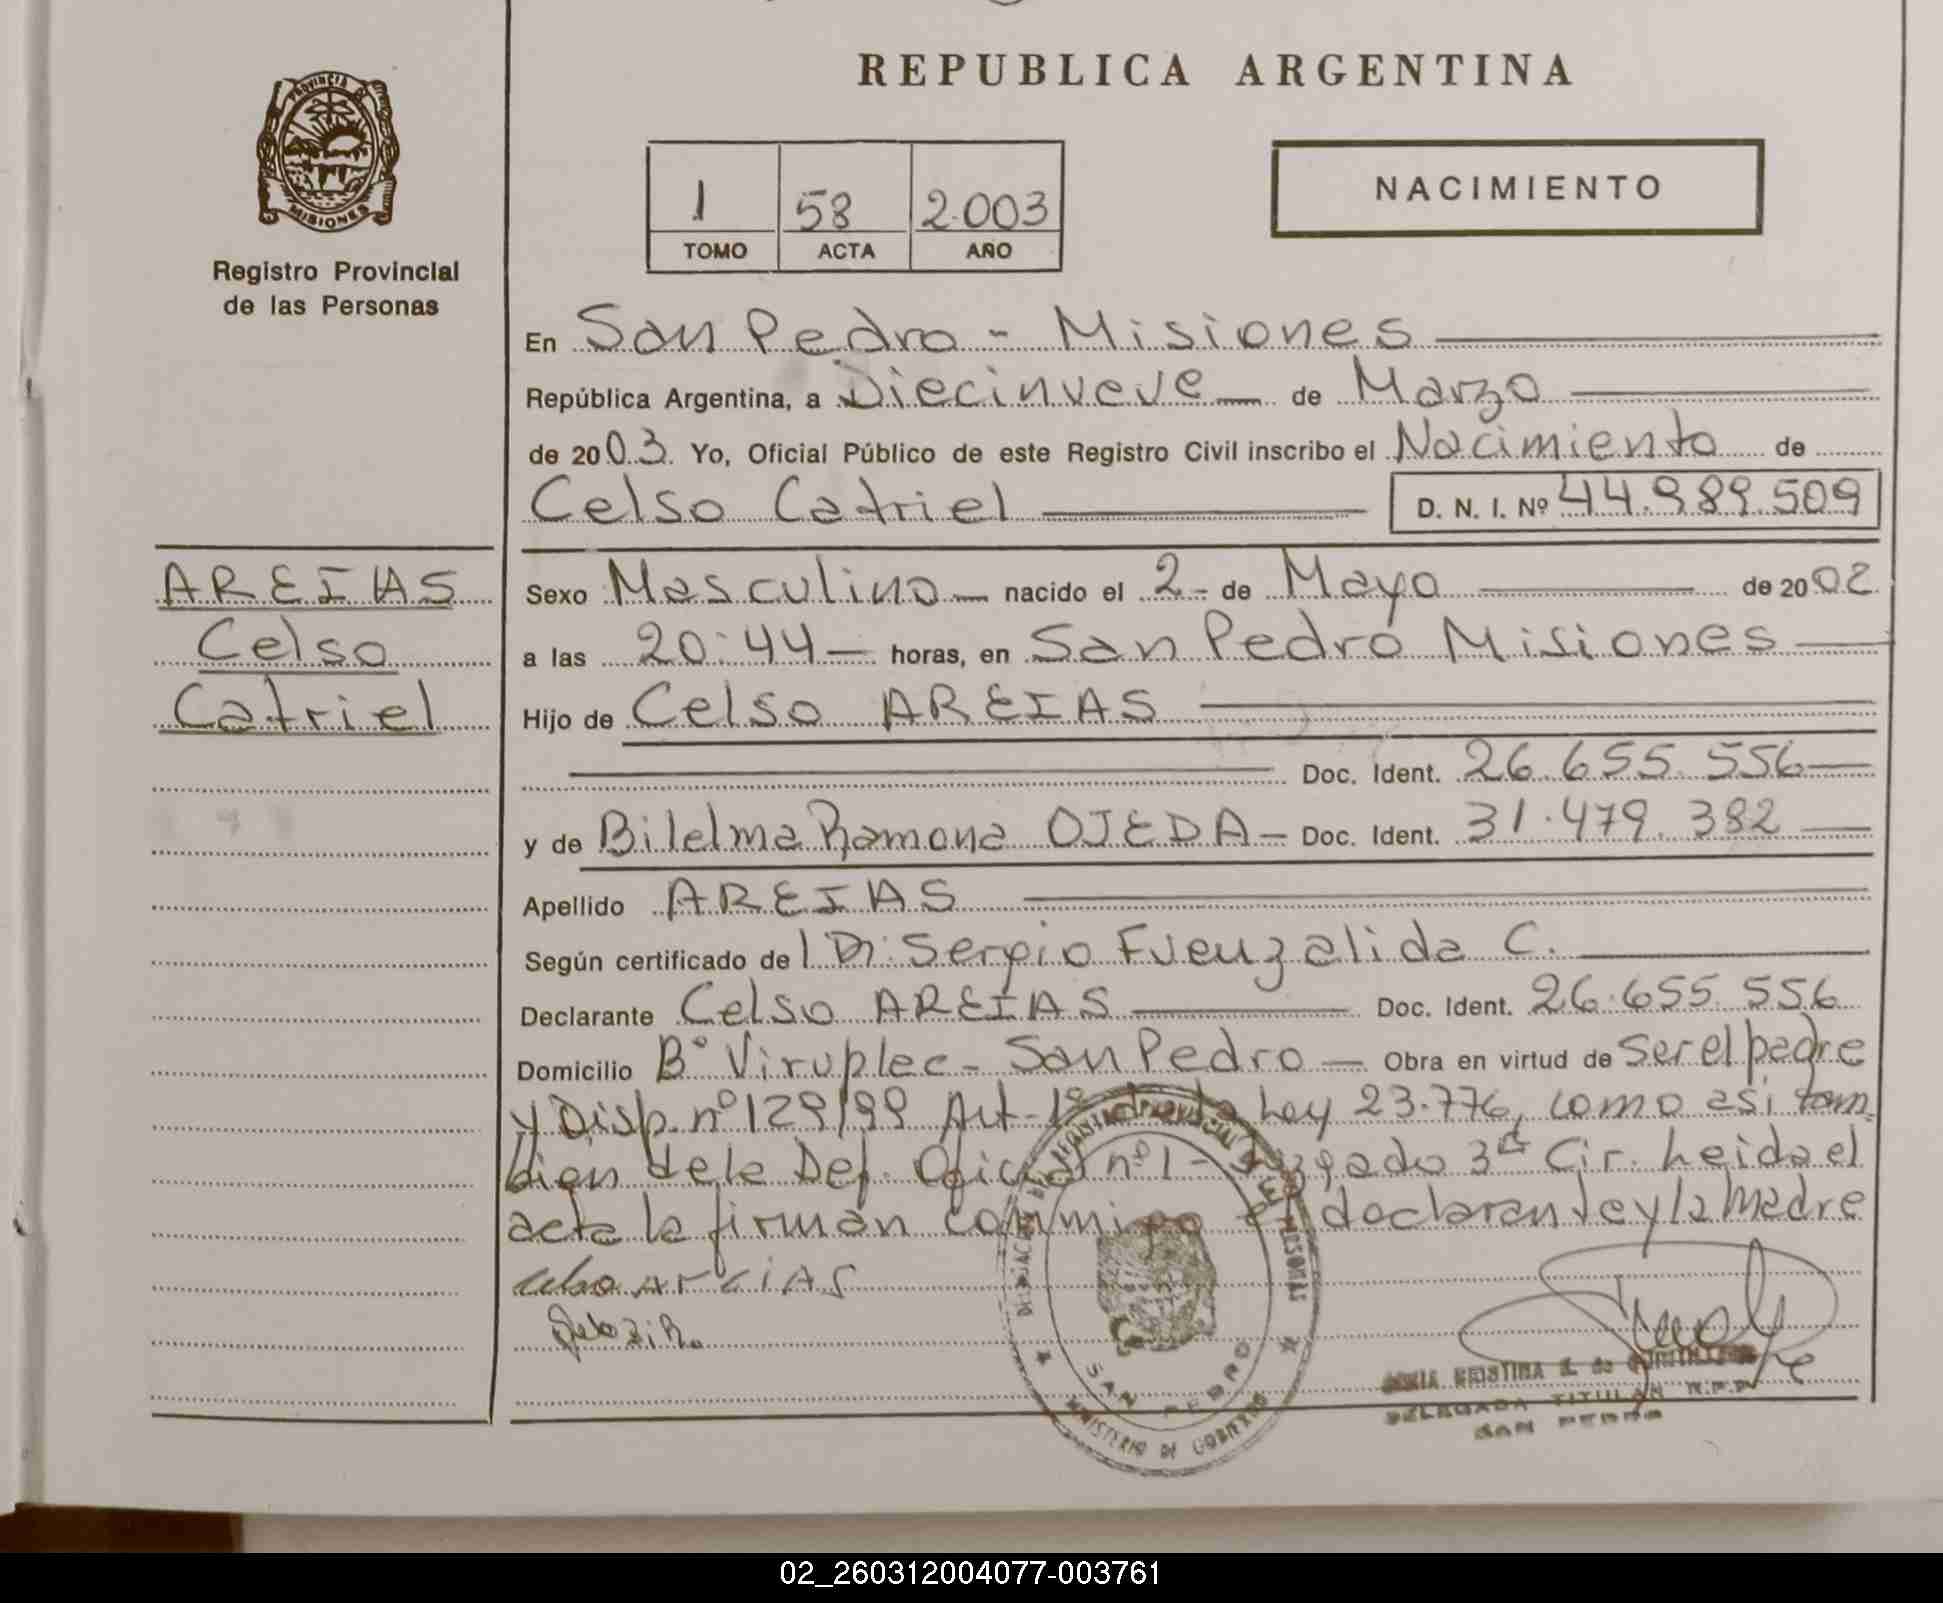 REPUBLICA ARGENTINA
PROVINCIA DE
MISIONES
Registro Provincial
de las Personas
1 58 2.003
TOMO ACTA AÑO
NACIMIENTO
En San Pedro - Misiones
República Argentina, a Diecinueve de Marzo
de 2003. Yo, Oficial Público de este Registro Civil inscribo el Nacimiento de
Celso Catriel D. N. I. Nº 44.989.509
AREIAS
Celso
Catriel
Sexo Masculino nacido el 2 - de Mayo de 2002
a las 20:44 horas, en San Pedro Misiones
Hijo de Celso AREIAS
Doc. Ident. 26.655.556
y de Bilelma Ramona OJEDA - Doc. Ident. 31.479.382
Apellido AREIAS
Según certificado de Dr. Sergio Fuenzalida C.
Declarante Celso AREIAS Doc. Ident. 26.655.556
Domicilio Bº Viruplec - San Pedro Obra en virtud de Ser el padre
y Disp. nº 129/99 Art - 1º de la Ley 23.776, como asi tam
bien de la Def. Oficial nº 1 - Juzgado 3ª Cir. Leida el
acta la firman conmigo el declarante y la Madre
Celso ArEiAS
SAN PEDRO
MINISTERIO DE GOBIERNO
DELEGADA TITULAR R.P.P
SAN PEDRO
02_260312004077-003761